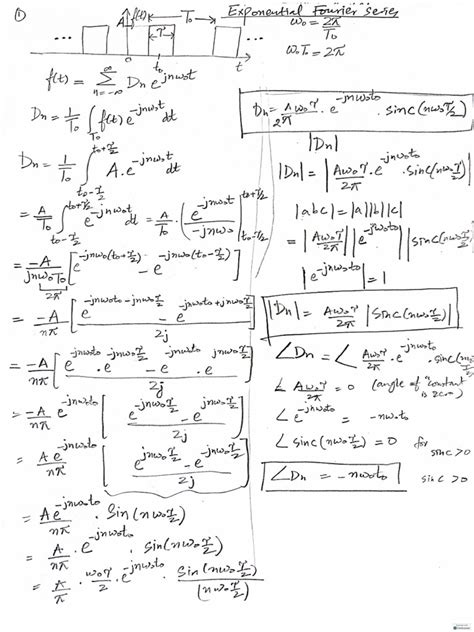 ① Exponential Fourier series
A f(t) τ T₀
... t₀ t ...
ω₀ = 2π/T₀
ω₀T₀ = 2π
f(t) = ∑_{n=-∞}^{∞} Dn e^{jnω₀t}
Dn = 1/T₀ ∫_{T₀} f(t) e^{-jnω₀t} dt
Dn = 1/T₀ ∫_{t₀-τ/2}^{t₀+τ/2} A. e^{-jnω₀t} dt
= A/T₀ ∫_{t₀-τ/2}^{t₀+τ/2} e^{-jnω₀t} dt = A/T₀ . (e^{-jnω₀t} / -jnω₀) |_{t₀-τ/2}^{t₀+τ/2}
= -A/(jnω₀T₀) [e^{-jnω₀(t₀+τ/2)} - e^{-jnω₀(t₀-τ/2)}]
2π
= -A/nπ [(e^{-jnω₀t₀-jnω₀τ/2} - e^{-jnω₀t₀+jnω₀τ/2}) / 2j]
= -A/nπ [(e^{-jnω₀t₀} . e^{-jnω₀τ/2} - e^{-jnω₀t₀} . e^{jnω₀τ/2}) / 2j]
= -A/nπ e^{-jnω₀t₀} [(e^{-jnω₀τ/2} - e^{jnω₀τ/2}) / 2j]
= A e^{-jnω₀t₀}/nπ [(e^{jnω₀τ/2} - e^{-jnω₀τ/2}) / 2j]
= A e^{-jnω₀t₀}/nπ . Sin(nω₀τ/2)
= A/nπ . e^{-jnω₀t₀} . sin(nω₀τ/2)
= A/π . ω₀τ/2 . e^{-jnω₀t₀} . Sin(nω₀τ/2)/(nω₀τ/2)
Dn = Aω₀τ/2π . e^{-jnω₀t₀} . sinc(nω₀τ/2)
|Dn|
|Dn| = |Aω₀τ/2π . e^{-jnω₀t₀} . sinc(nω₀τ/2)|
|abc| = |a||b||c|
= |Aω₀τ/2π| |e^{-jnω₀t₀}| |sinc(nω₀τ/2)|
|e^{-jnω₀t₀}| = 1
|Dn| = Aω₀τ/2π |sinc(nω₀τ/2)|
∠Dn = ∠ Aω₀τ/2π . e^{-jnω₀t₀} . sinc(nω₀τ/2)
∠ Aω₀τ/2π = 0 (angle of constant is zero)
∠ e^{-jnω₀t₀} = -nω₀t₀
∠ sinc(nω₀τ/2) = 0 for sinc>0
∠Dn = -nω₀t₀ sinc>0